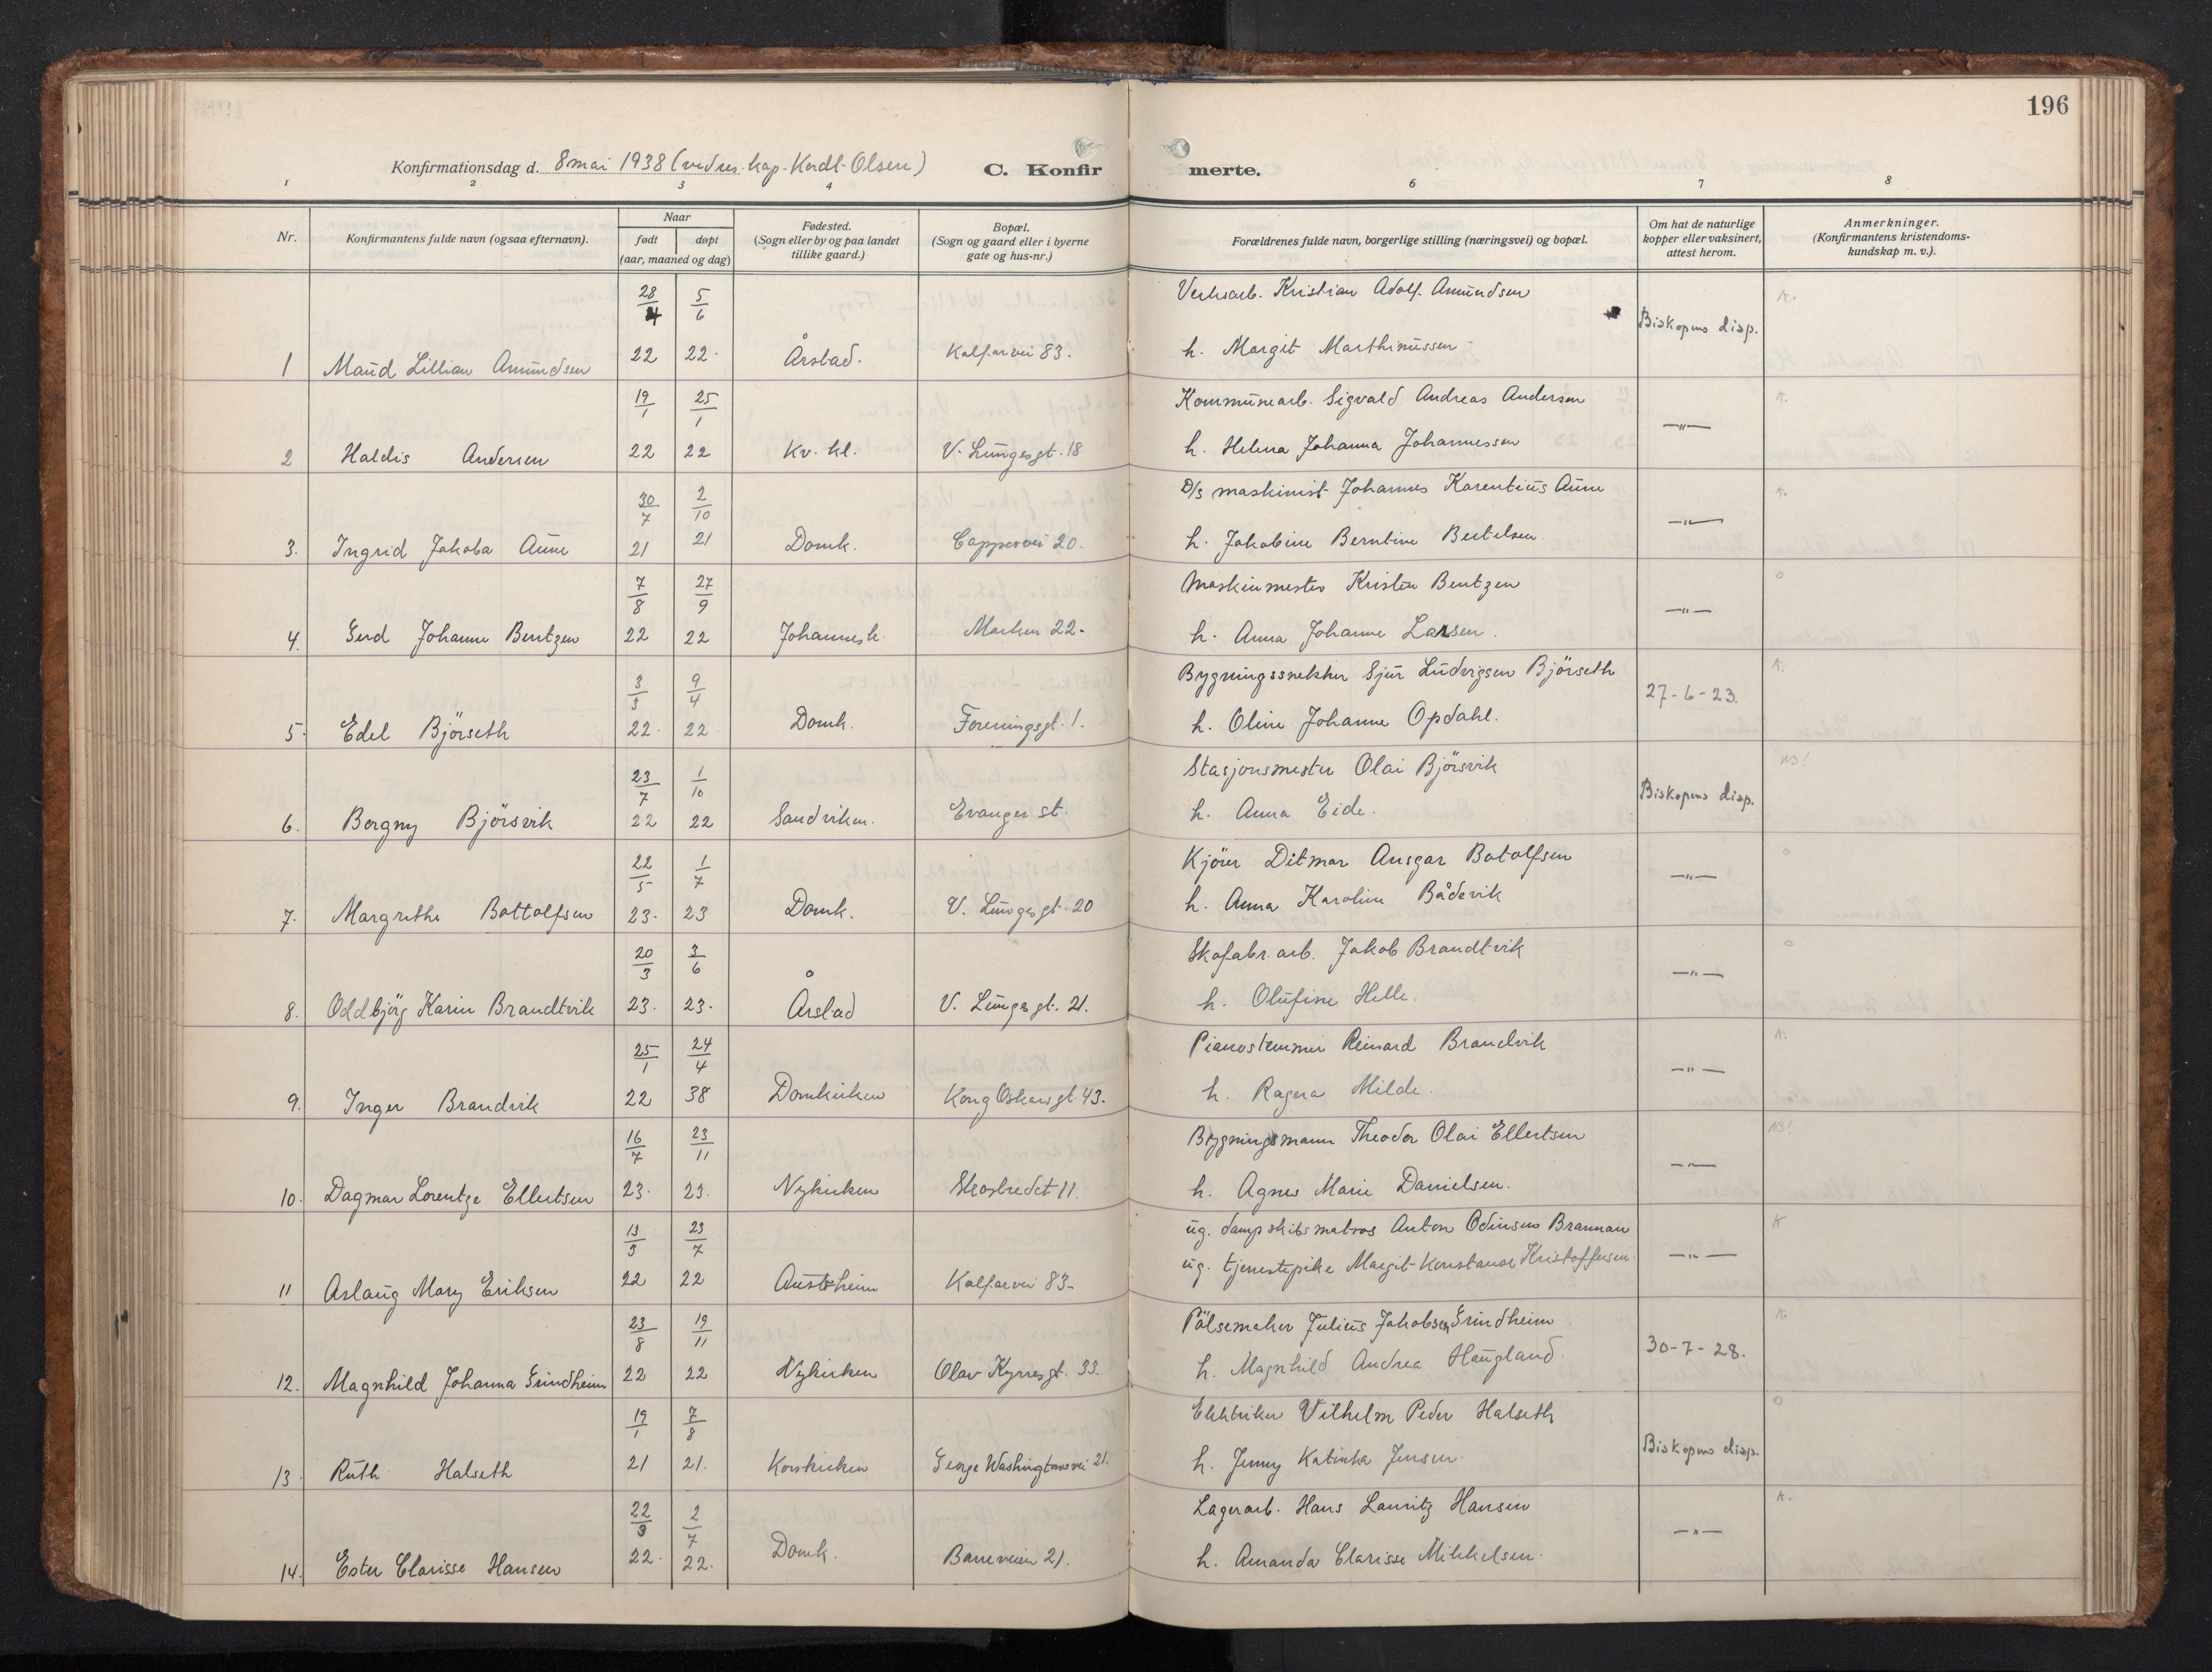 196
Konfirmationsdag d. 8 mai 1938 (ved res. kap. Kordt-Olsen) C. Konfirmerte.
1 2 3 4 6 7 8
Nr. Konfirmantens fulde navn (ogsaa efternavn). Naar født døpt (aar, maaned og dag) Fødested. (Sogn eller by og paa landet tillike gaard.) Bopæl. (Sogn og gaard eller i byerne gate og hus-nr.) Forældrenes fulde navn, borgerlige stilling (næringsvei) og bopæl. Om hat de naturlige kopper eller vaksinert, attest herom. Anmerkninger. (Konfirmantens kristendoms-kundskap m. v.).
28/4 5/6 Verksarb. Kristian Adolf Amundsen K.
1 Maud Lillian Amundsen 22 22. Årstad. Kalfarvei 83. h. Margit Marthinussen Biskopens disp.
19/1 25/1 Kommunearb. Sigvald Andreas Andersen K.
2 Haldis Andersen 22 22 Kv. kl. V. Lungesgt. 18 h. Helena Johanna Johannessen —"—
30/7 2/10 D/s maskinist Johannes Karentius Aune K.
3. Ingrid Jakoba Aune 21 21 Domk. Cappesvei 20. h. Jakobine Berntine Bertelsen. —"—
7/8 27/9 Maskinmester Kristen Bentzen o
4. Gerd Johanne Bentzen 22 22 Johannesk. Marken 22. h. Anna Johanne Larsen. —"—
3/3 9/4 Bygningssnekker Sjur Ludvigsen Björseth K.
5. Edel Björseth 22. 22 Domk. Foreningsgt. 1. h. Oline Johanne Opdahl. 27-6-23.
23/7 1/10 Stasjonsmester Olai Björsvik NB!
6. Borgny Björsvik 22 22 Sandviken. Evanger st. h. Anna Eide. Biskopens disp.
22/5 1/7 Kjörer Ditmar Ansgar Botolfsen o
7. Margrethe Bottolfsen 23. 23 Domk. V. Lungesgt. 20 h. Anna Karoline Bådsvik —"—
20/3 3/6 Skofabr. arb. Jakob Brandtvik o
8. Oddbjörg Karin Brandtvik 23. 23. Årstad V. Lungesgt. 21. h. Olufine Helle. —"—
25/1 24/4 Pianostemmer Reinard Brandvik K.
9. Inger Brandvik 22 38 Domkirken Kong Oskarsgt. 43. h. Ragna Milde. —"—
16/7 23/11 Bygningsmann Theodor Olai Ellertsen NB!
10. Dagmar Lorentze Ellertsen 23. 23. Nykirken Skostredet 11. h. Agnes Marie Danielsen. —"—
13/3 23/7 ug. dampskibsmatros Anton Odinsen Brannan K
11 Aslaug Mary Eriksen 22 22 Austrheim Kalfarvei 83. ug. tjenestepike Margit Konstanse Kristoffersen. —"—
23/8 19/11 Pölsemaker Julius Jakobsen Grindheim K.
12. Magnhild Johanna Grindheim 22 22 Nykirken Olav Kyrresgt. 33. h. Magnhild Andrea Haugland. 30-7-28.
19/1 7/8 Elektriker Vilhelm Peder Halseth o
13. Ruth Halseth 21 21. Korskirken George Washingtonsvei 21. h. Jenny Katinka Jensen. Biskopens disp.
22/3 2/7 Lagerarb. Hans Lauritz Hansen K.
14. Ester Clarisse Hansen 22. 22. Domk. Baneveien 21. h. Amanda Clarisse Mikkelsen. —"—